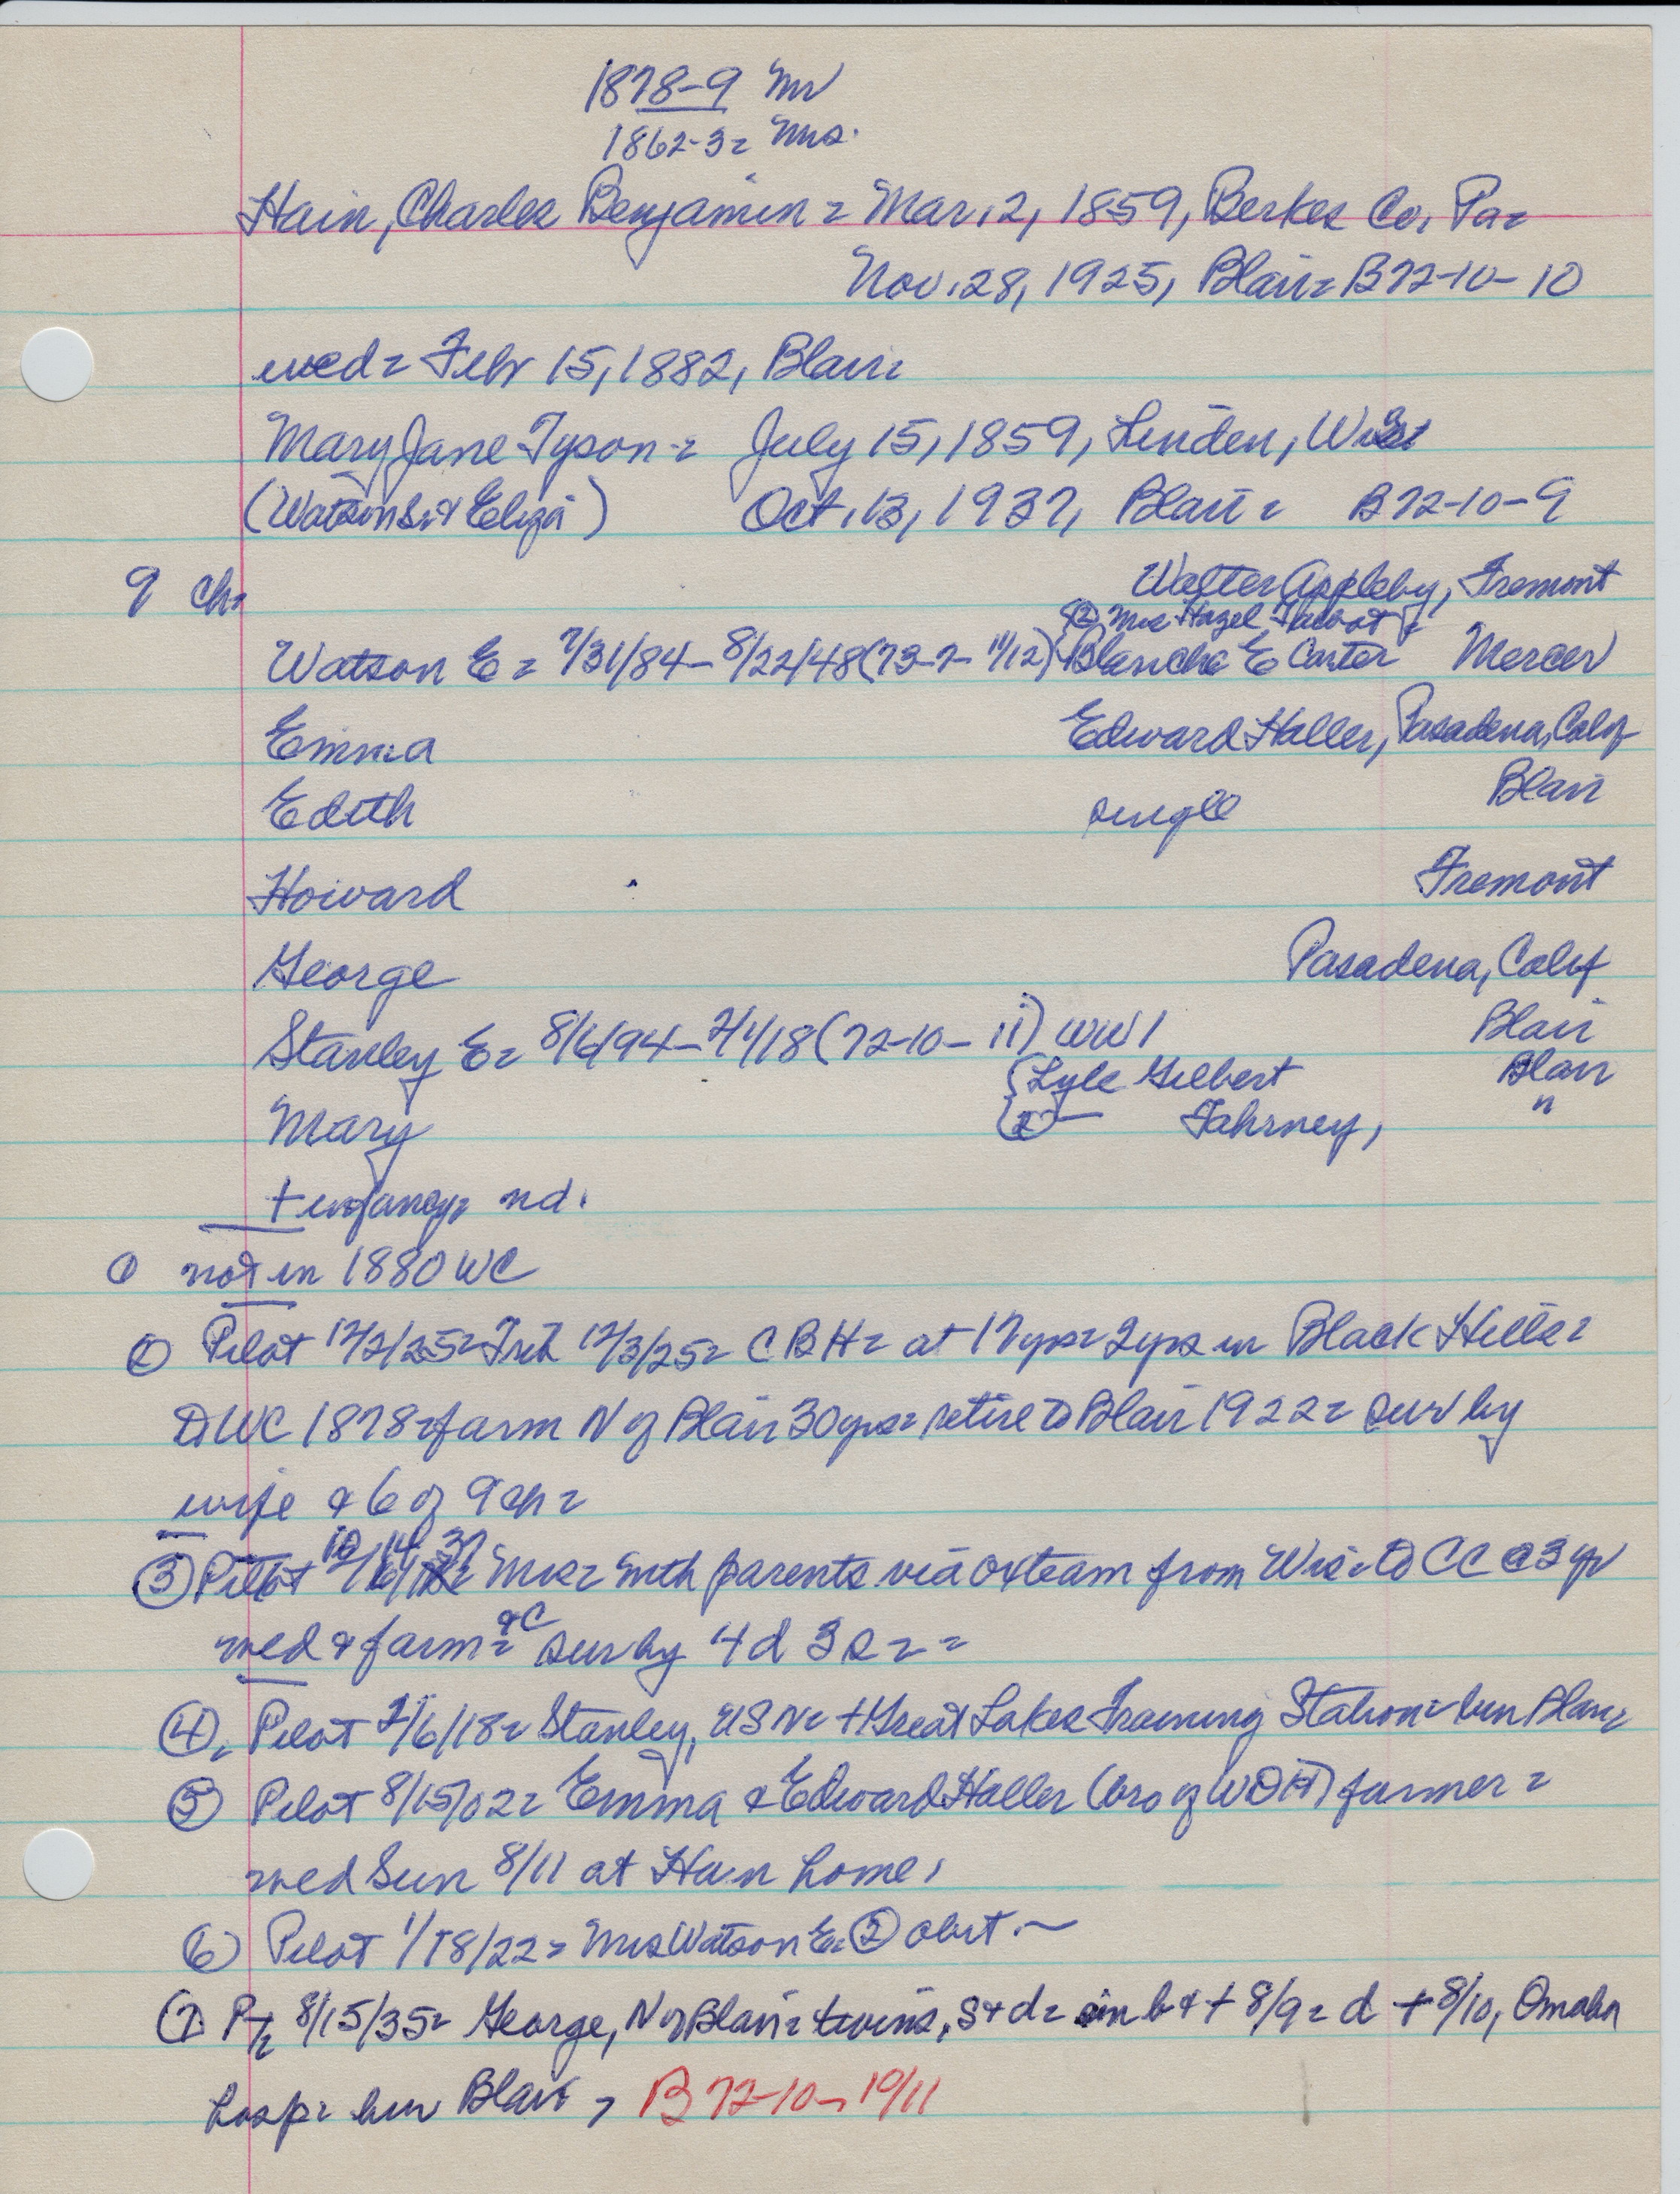 1878-9 Mr
1862-3= Mrs.
Hain, Charles Benjamin = Mar. 2, 1859, Berkes Co, Pa=
Nov. 28, 1925, Blair= B72-10-10
wed= Febr 15, 1882, Blair=
Mary Jane Tyson = July 15, 1859, Linden, Wis
(Watson Sr & Eliza) Oct. 13, 1937, Blair = B72-10-9
9 ch=
Walter Appleby, Fremont
(2) Mrs Hazel Talbot
Watson E = 7/31/84 - 8/22/48 (73-7-11/12) Blanche E Carter Mercer
Emma Edward Haller, Pasadena, Calif
Edith single Blair
Howard Fremont
George Pasadena, Calif
Stanley E= 8/6/94 - 2/1/18 (72-10-11) WW1 Blair
{Lyle Gilbert Blair
Mary {2 — Fahrney, "
+ infancy= nd.
① not in 1880 WC
② Pilot 12/2/25= Trib 12/3/25= CBH= at 17 yrs= 2 yrs in Black Hills=
to WC 1878= farm N of Blair 30 yrs= retire to Blair 1922= surv by
wife & 6 of 9 ch=
③ Pilot 10/14/37 Mrs= with parents via oxteam from Wis= to CC @ 3 yr
wed & farm= &C surv by 4 d 3 s = =
④. Pilot 2/6/18= Stanley, USN= + Great Lakes Training Station= bur Blair=
⑤ Pilot 8/15/02= Emma & Edward Haller (bro of WDH) farmer=
wed Sun 8/11 at Hain home.
⑥ Pilot 1/18/22= Mrs Watson E= ② obit.~
⑦ P/E 8/15/35= George, N of Blair= twins, s & d= son b & + 8/9= d + 8/10, Omaha
hosp= bur Blair, B 72-10-10/11